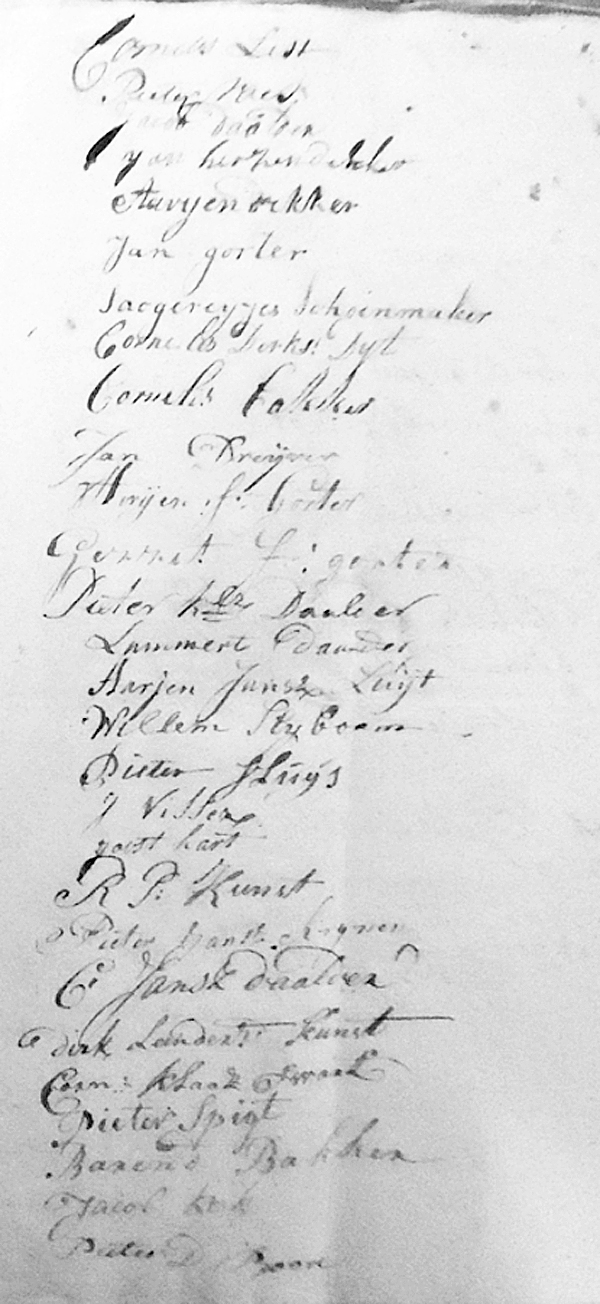 Cornelis List
Pieter Kues
Jacob Daalder
Jan hertzendekker
Aaryen dekker
Jan gorter
Schoenmaker
Cornelis Dirks: Dyt
Cornelis Bakker
Jan Kreijner
Aryen J: Gorter
Gerrit J: gorter
Pieter Klsz Daalder
Lammert daalder
Aarjen Jansz Luijt
Willem Styboom
Pieter Sluijs
J Visser
joost hart
R P: Kunst
Pieter Jansz:
C: Jansz Daalder
dirk Lenderts: Kunst
Corn: Klaasz
Pieter Spigt
Barend Bakker
Jacob
Pieter D